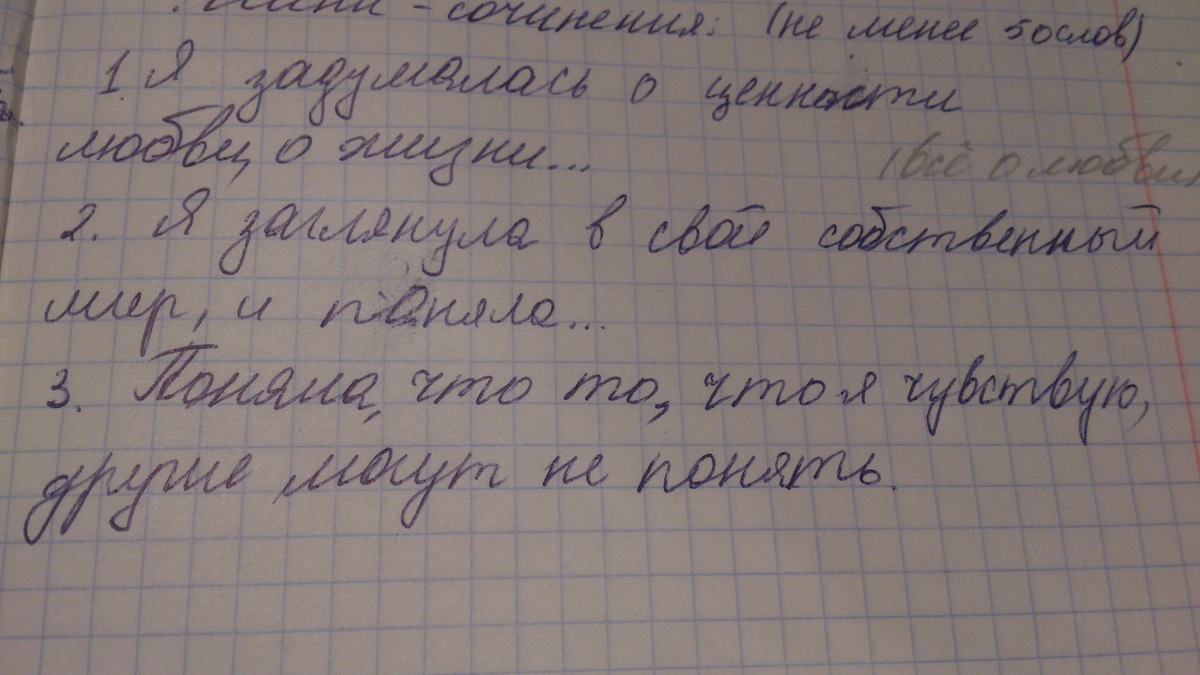 Мини - сочинения: (не менее 50слов)
1. Я задумалась о ценности
любви, о жизни...
(всё о любви)
2. Я заглянула в свой собственный
мир, и поняла...
3. Поняла, что то, что я чувствую,
другие могут не понять.